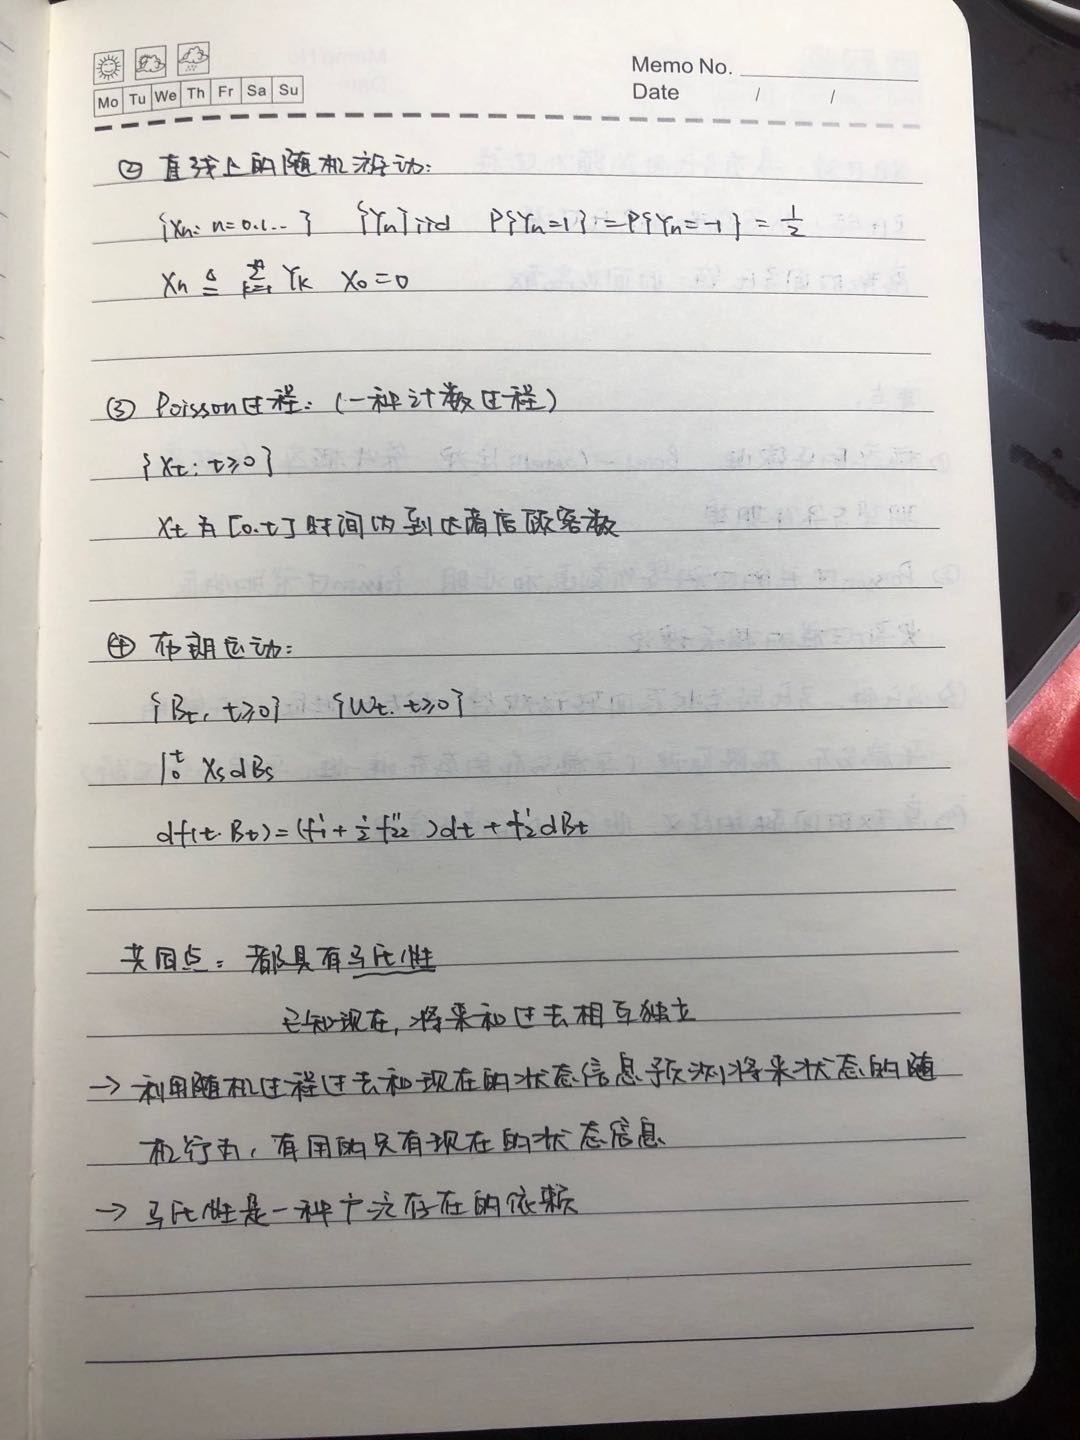 Memo No.
Date / /
Mo Tu We Th Fr Sa Su
② 直线上的随机游动:
{Xn: n=0.1...} {Yn}iid P{Yn=1}=P{Yn=-1}=1/2
Xn ≜ Σ_{k=1}^{n} Yk X0=0
③ Poisson过程: (一种计数过程)
{Xt: t≥0}
Xt为[0.t]时间内到达商店顾客数
④ 布朗运动:
{Bt, t≥0} {Wt. t≥0}
∫₀ᵗ XsdBs
df(t.Bt)=(f₁'+½f₂₂'')dt+f₂'dBt
共同点: 都具有马氏性
已知现在, 将来和过去相互独立
→ 利用随机过程过去和现在的状态信息预测将来状态的随
机行为, 有用的只有现在的状态信息
→ 马氏性是一种广泛存在的依赖